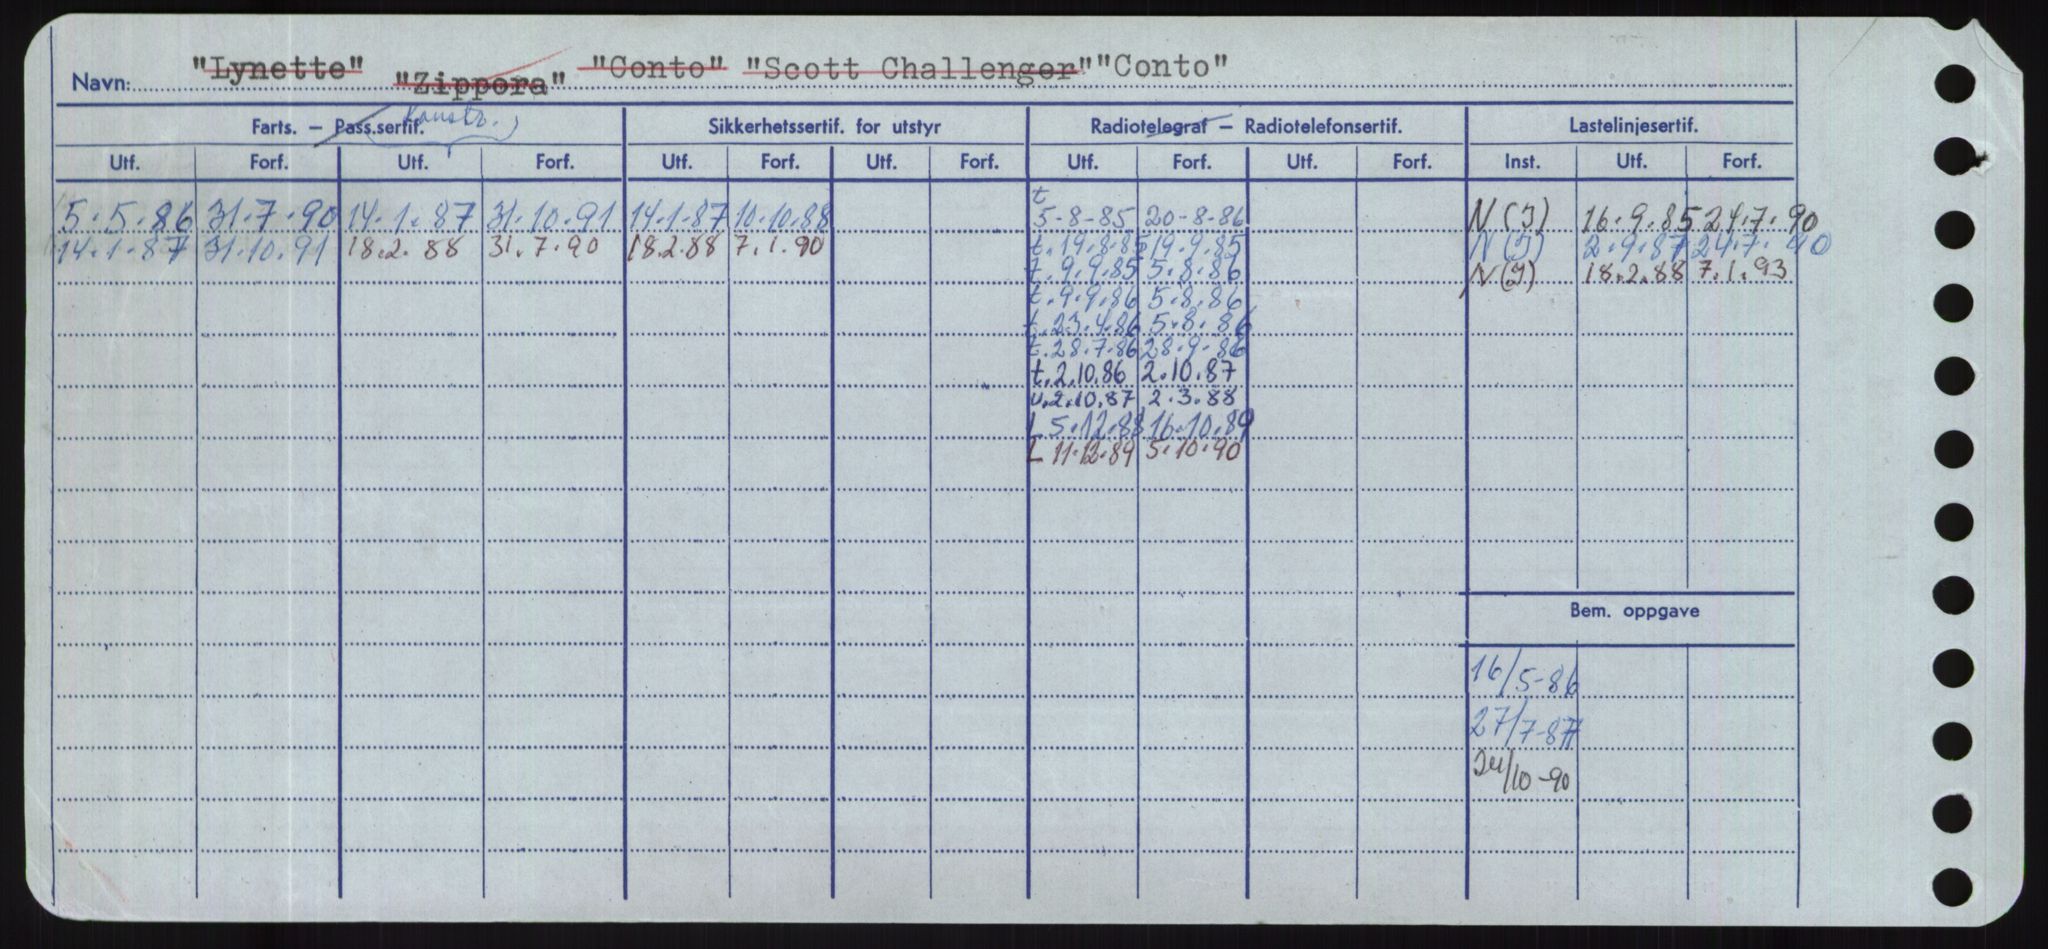 Navn: "Lynette" "Zippora" "Conto" "Scott Challenger" "Conto"
Farts. – Pass.sertif. Konstr. Sikkerhetssertif. for utstyr Radiotelegraf – Radiotelefonsertif. Lastelinjesertif.
Utf. Forf. Utf. Forf. Utf. Forf. Utf. Forf. Utf. Forf. Utf. Forf. Inst. Utf. Forf.
t
5.5.86 31.7.90 14.1.87 31.10.91 14.1.87 10.10.88 5-8-85 20-8-86 N(I) 16.9.85 24.7.90
14.1.87 31.10.91 18.2.88 31.7.90 18.2.88 7.1.90 t.19.8.85 19.9.85 N(I) 2.9.87 24.7.90
t.9.9.85 5.8.86 N(I) 18.2.88 7.1.93
t.9.9.86 5.8.86
t.23.4.86 5.8.86
t.28.7.86 28.9.86
t.2.10.86 2.10.87
u.2.10.87 2.3.88
L 5.12.88 16.10.89
L 11.12.89 5.10.90
Bem. oppgave
16/5-86
27/7-87
24/10-90